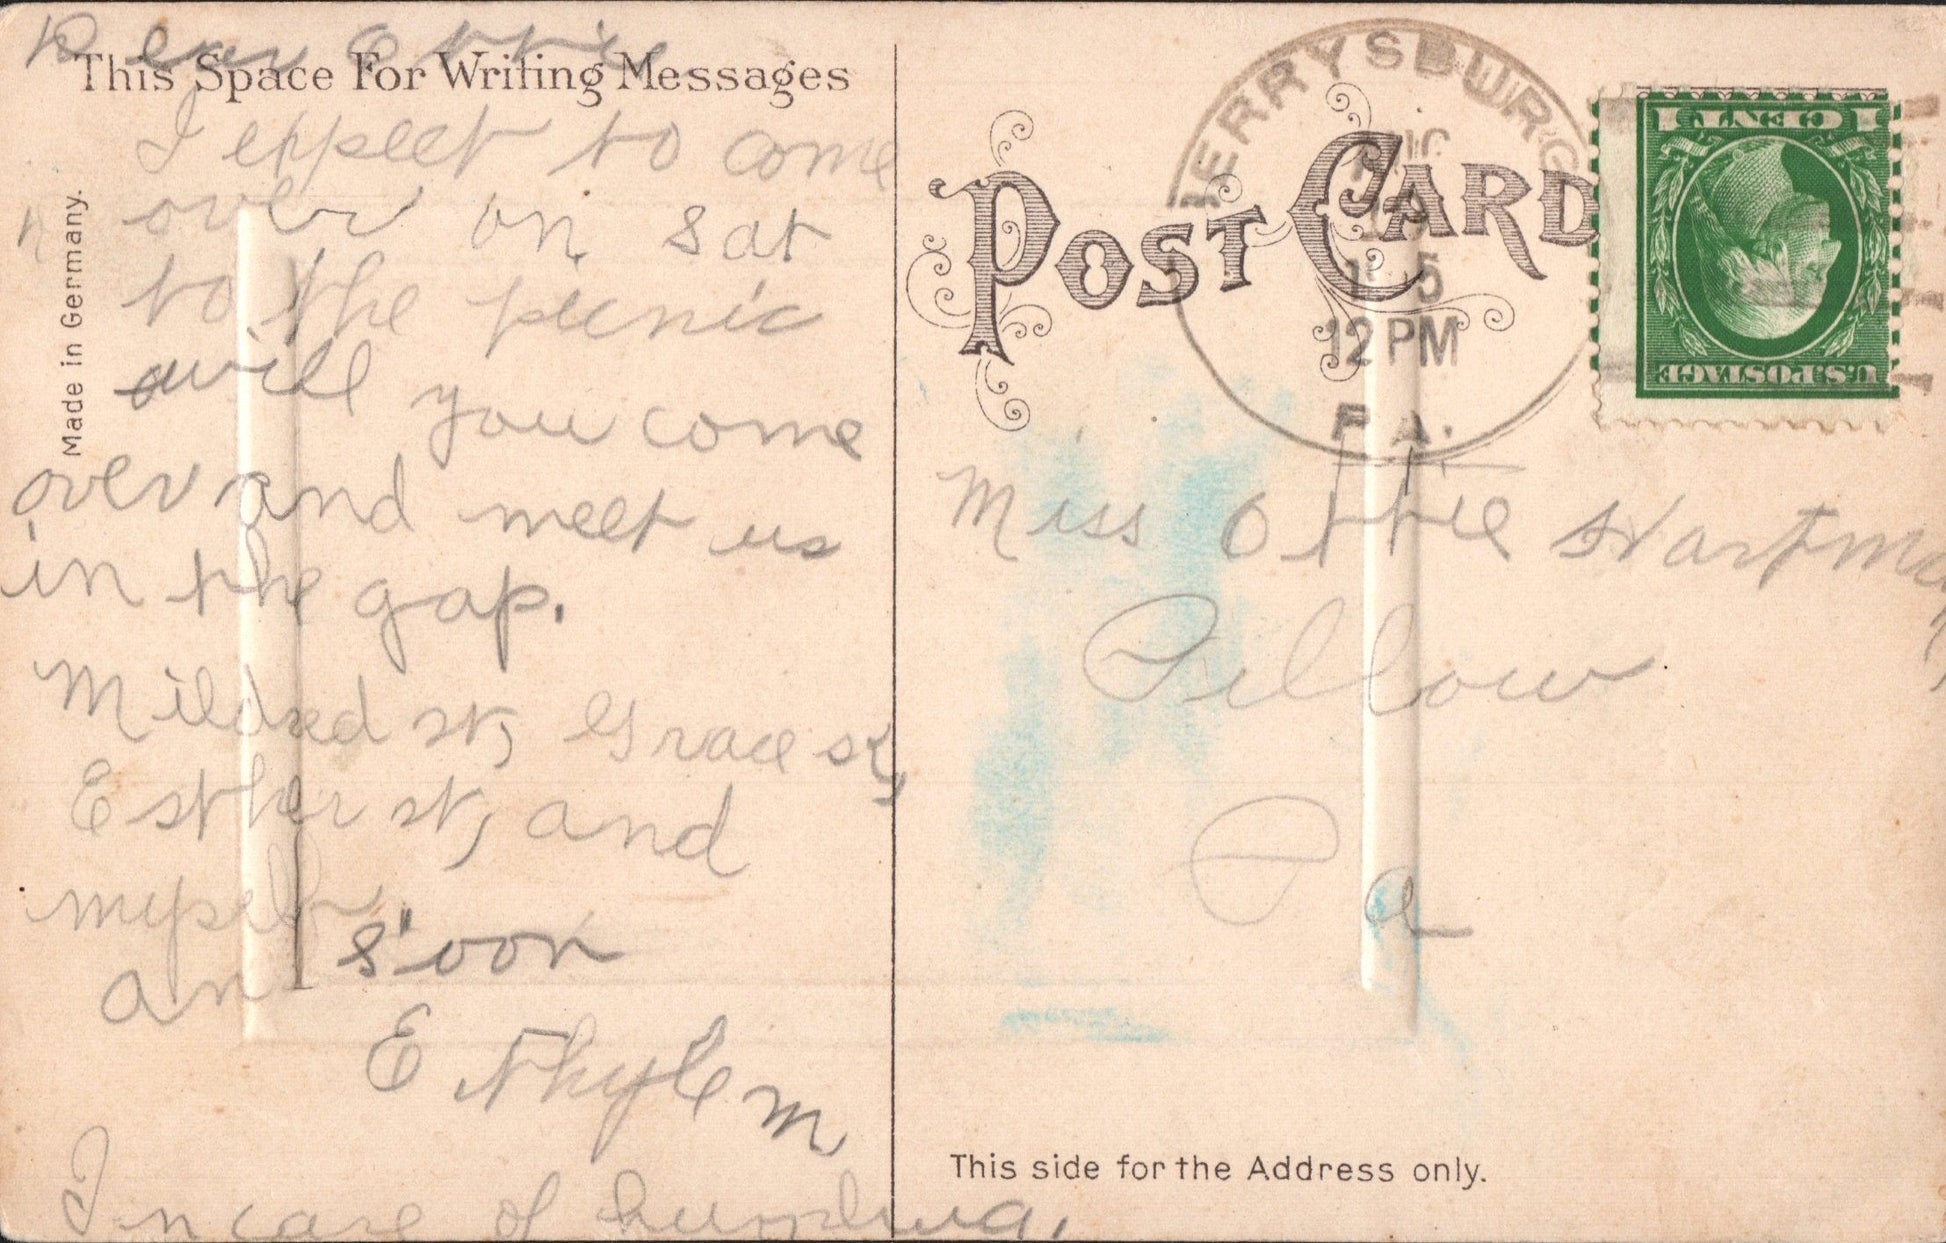 Dear Ottie
This Space For Writing Messages
I expect to come
over on Sat
to the picnic
will you come
over and meet us
in the gap.
Mildred st, Grace st,
Esther st, and
myself
an s'oon
Ethyle m
In care of
Made in Germany.
POST CARD
BERRYSBURG
12 PM
PA.
U.S. POSTAGE
1 CENT 1
Miss Ottie Hartman
Pillow
Pa
This side for the Address only.